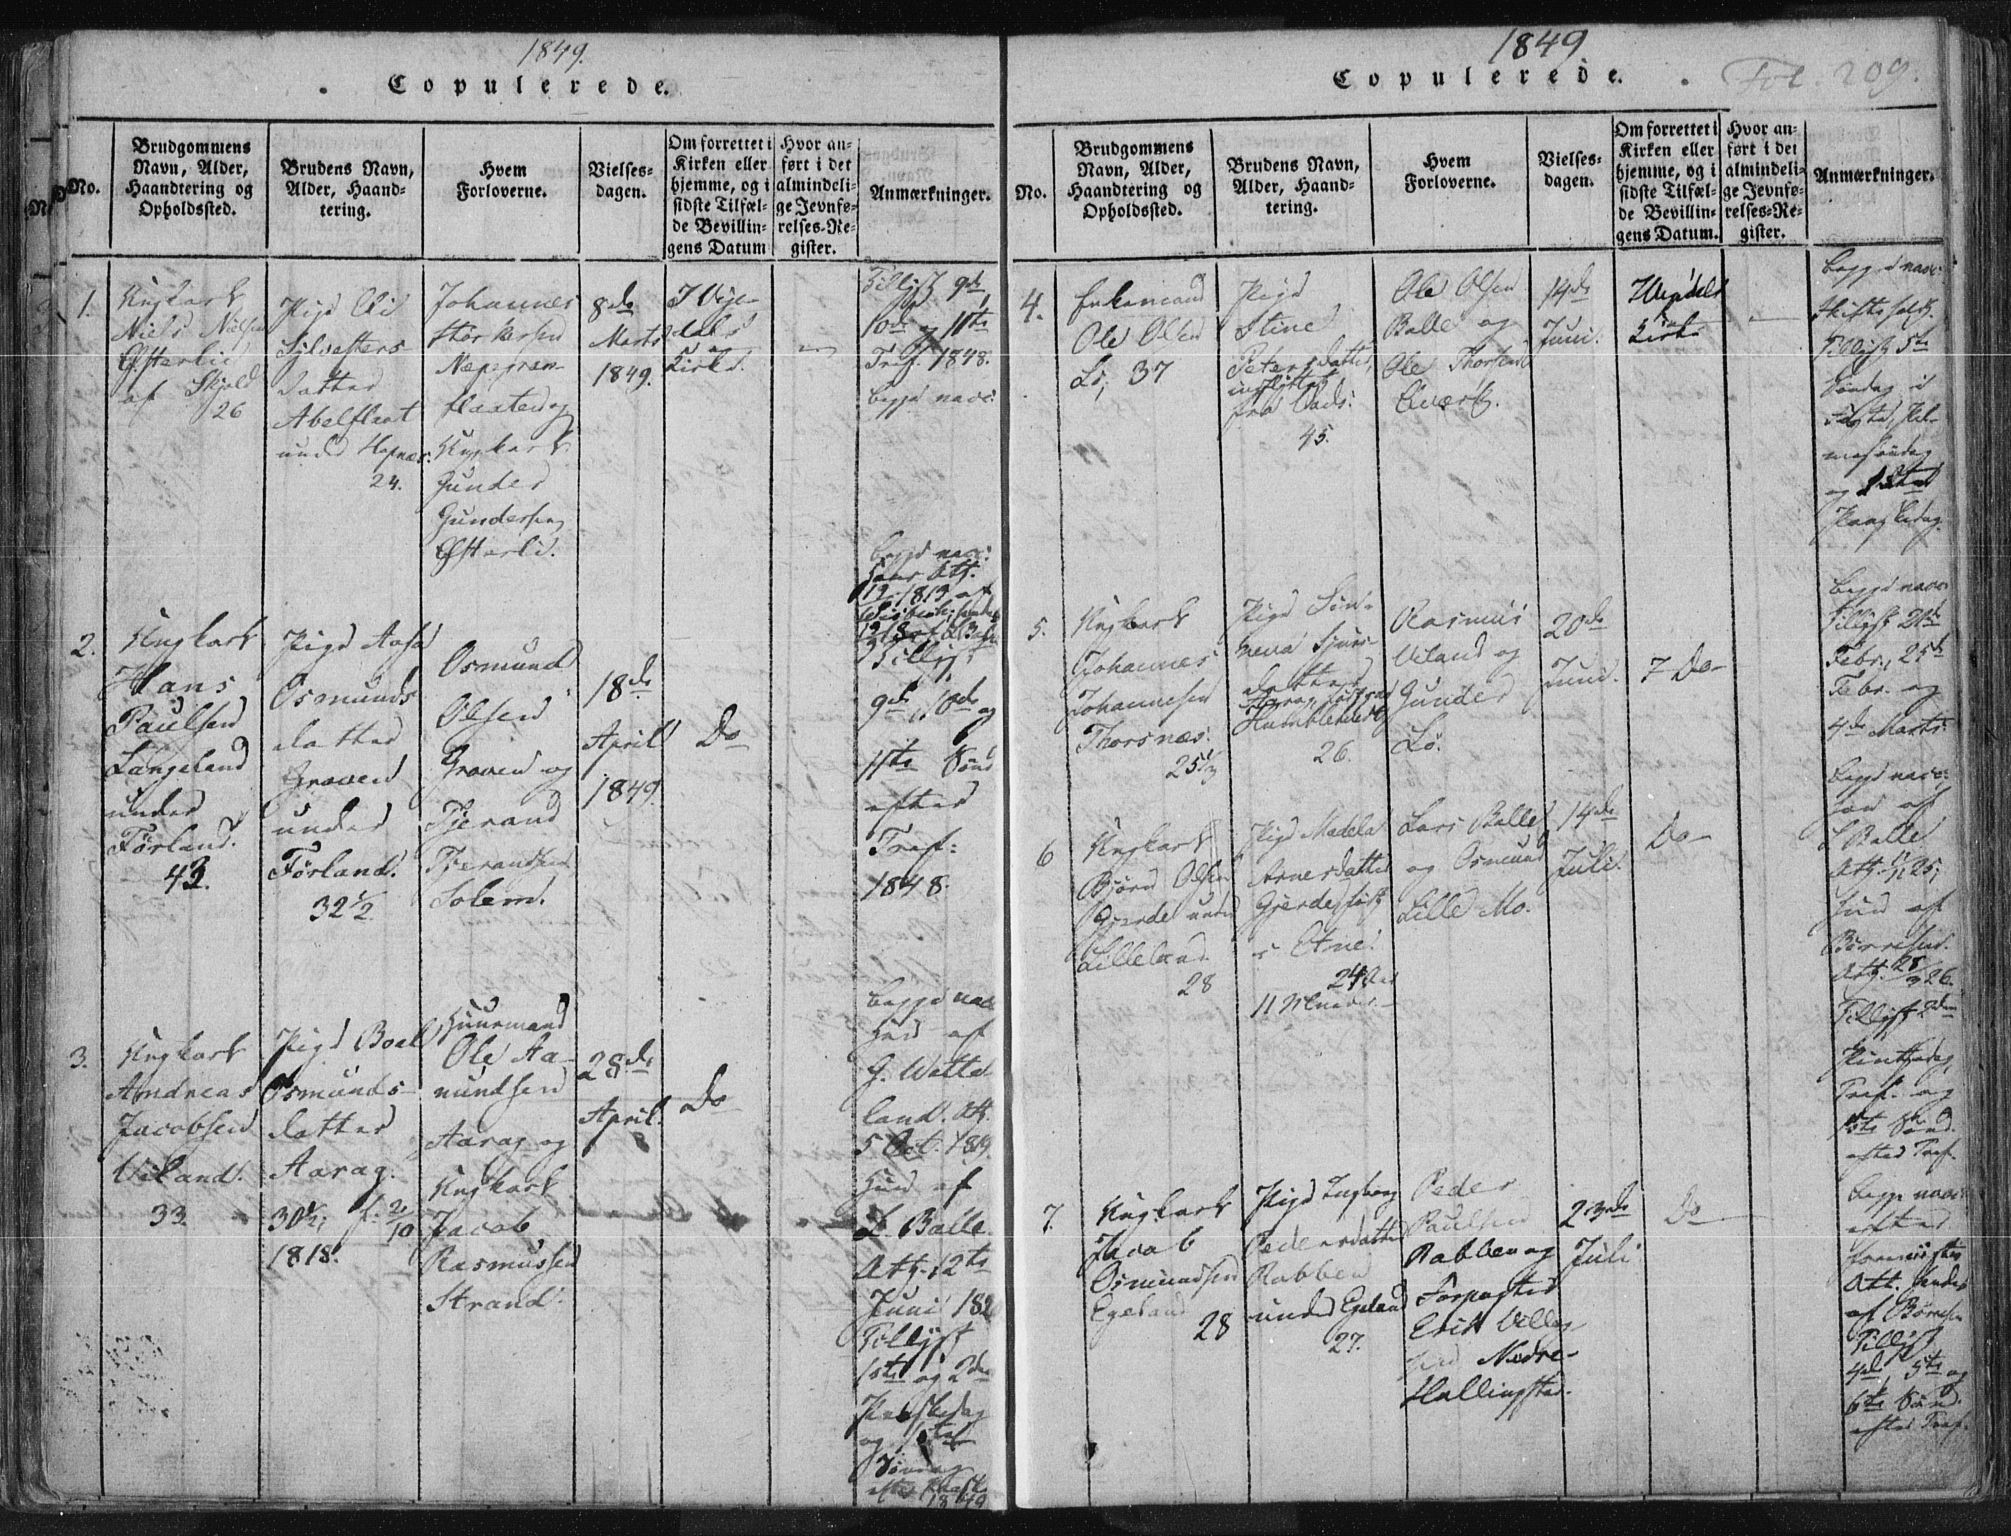 1849.
Copulerede.
No.
Brudgommens
Navn, Alder,
Haandtering og
Opholdssted.
Brudens Navn,
Alder, Haand-
tering.
Hvem
Forloverne.
Vielses-
dagen.
Om forrettet i
Kirken eller
hjemme, og i
sidste Tilfæl-
de Bevillin-
gens Datum
Hvor an-
ført i det
almindeli-
ge Jevnfø-
relses-Re-
gister.
Anmærkninger.
1.
Ungkarl
Niels Nielsen
Østerlid
af Skjold
26
Pige
Sylvesters
datter
Abelflaat
under
24.
Johannes
Størkersen
flaaten og
Ungkarl
Gunder
Gundersen
Østerlid.
8de
Marts
1849.
I Vige-
dals
Kirke.
Tillyst 9de
10de og 11te
Tref. 1848.
begge vacc:
2.
Ungkarl
Hans
Paulsen
Langeland
under
Førland.
43.
Pige Aasa
Osmunds
datter
Graven
under
Førland.
32½
Osmund
Olsen
Graven og
Tjerand
Tjerandsen
Solem.
18de
April
1849.
Do
begge vacc:
Hans Att.
Tillyst
9de, 10de og
11te Sønd
efter
Tref:
1848.
3.
Ungkarl
Andreas
Jacobsen
Viland.
33.
Pige Boel
Osmunds-
datter
Aarag.
30½,
1818.
Huusmand
Ole Aa-
mundsen
Aarag og
Ungkarl
Jacob
Rasmussen
Strand.
28de
April.
Do
begge vacc
Hun af
land. Att.
5 Oct.
Hun af
L. Balle
Att. 12te
Juni
Tillyst
1ste og 2den
Paaskedag
og 1ste
Søndag
efter Paaske
1849
1849
Copulerede.
Fol. 209.
No.
Brudgommens
Navn, Alder,
Haandtering og
Opholdssted.
Brudens Navn,
Alder, Haand-
tering.
Hvem
Forloverne.
Vielses-
dagen.
Om forrettet i
Kirken eller
hjemme, og i
sidste Tilfæl-
de Bevillin-
gens Datum.
Hvor an-
ført i det
almindeli-
ge Jevnfø-
relses-Re-
gister.
Anmærkninger.
4.
Enkemand
Ole Olsen
Lø, 37
Pige
Stine
Petersdatter,
indflyttet
fra Vads:
45.
Ole Olsen
Balle og
Ole Thorsen
14de
Juni.
Vigedals
Kirke
begge vacc:
Skiftesedl.
Tillyst 5te
Søndag i
Faste, Pal-
mesøndag
og 1ste
Paaskedag.
5.
Ungkarl
Johannes
Johannesen
Thorsnæs.
25½
Pige Sün-
neva Sjurs-
datter
26.
Rasmus
Viland og
Gunder
Lø.
20de
Juni.
Do
begge vacc:
Tillyst
Febr., 25de
Febr. og
4de Marts.
6
Ungkarl
Bjørn Olsen
Gjerde under
Lilleland
28
Pige Madela
Arnesdatter
Gjerde, født
i Etne.
24 Aar
11 Maaneder.
Lars Balle
og Osmund
Lille Mo.
14de
Juli.
Do
begge vacc:
han af
L Balle
Att.
hun af
Børresen.
Att.
Tillyst 2den
Pintsedag,
Tref. og
1ste Sønd.
efter Tref.
7.
Ungkarl
Jacob
Osmundsen
Egeland
28
Pige Ingborg
Pedersdatter
Rabben
under Egeland
27.
Peder
Paulsen
Rabben og
Forpagter
Erik
Nedre-
Hallingstad.
23de
Juli
Do
begge vacc:
efter
Att. sendes
af Børresen
Tillyst
4de, 5te og
6te Sønd.
efter Tref.